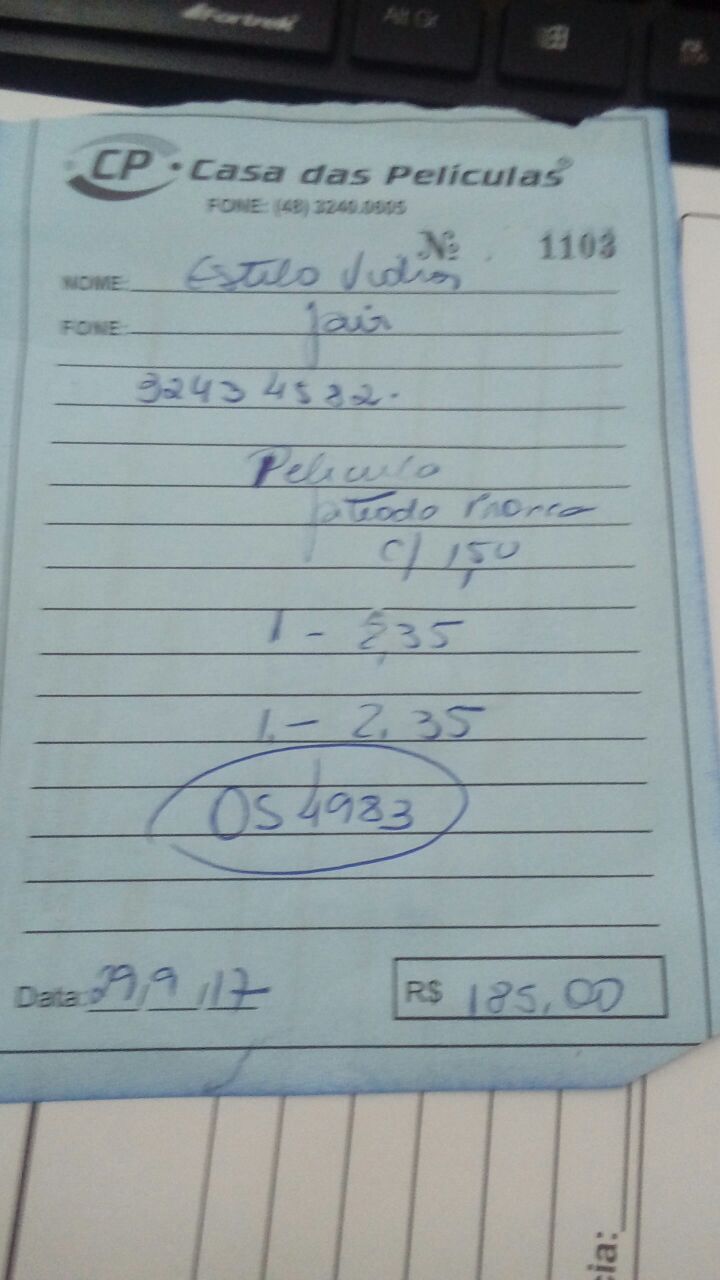 Fortrek
Alt Gr
CP • Casa das Películas®
FONE: (48) 3240.0605
Nº 1103
NOME: Estilo Vidros
FONE: Jair
92434582.
Pelicula
Jateado
c/ 1,50
1 - 2,35
1. - 2,35
OS 4983
Data: 29, 9, 17
R$ 185,00
ia: